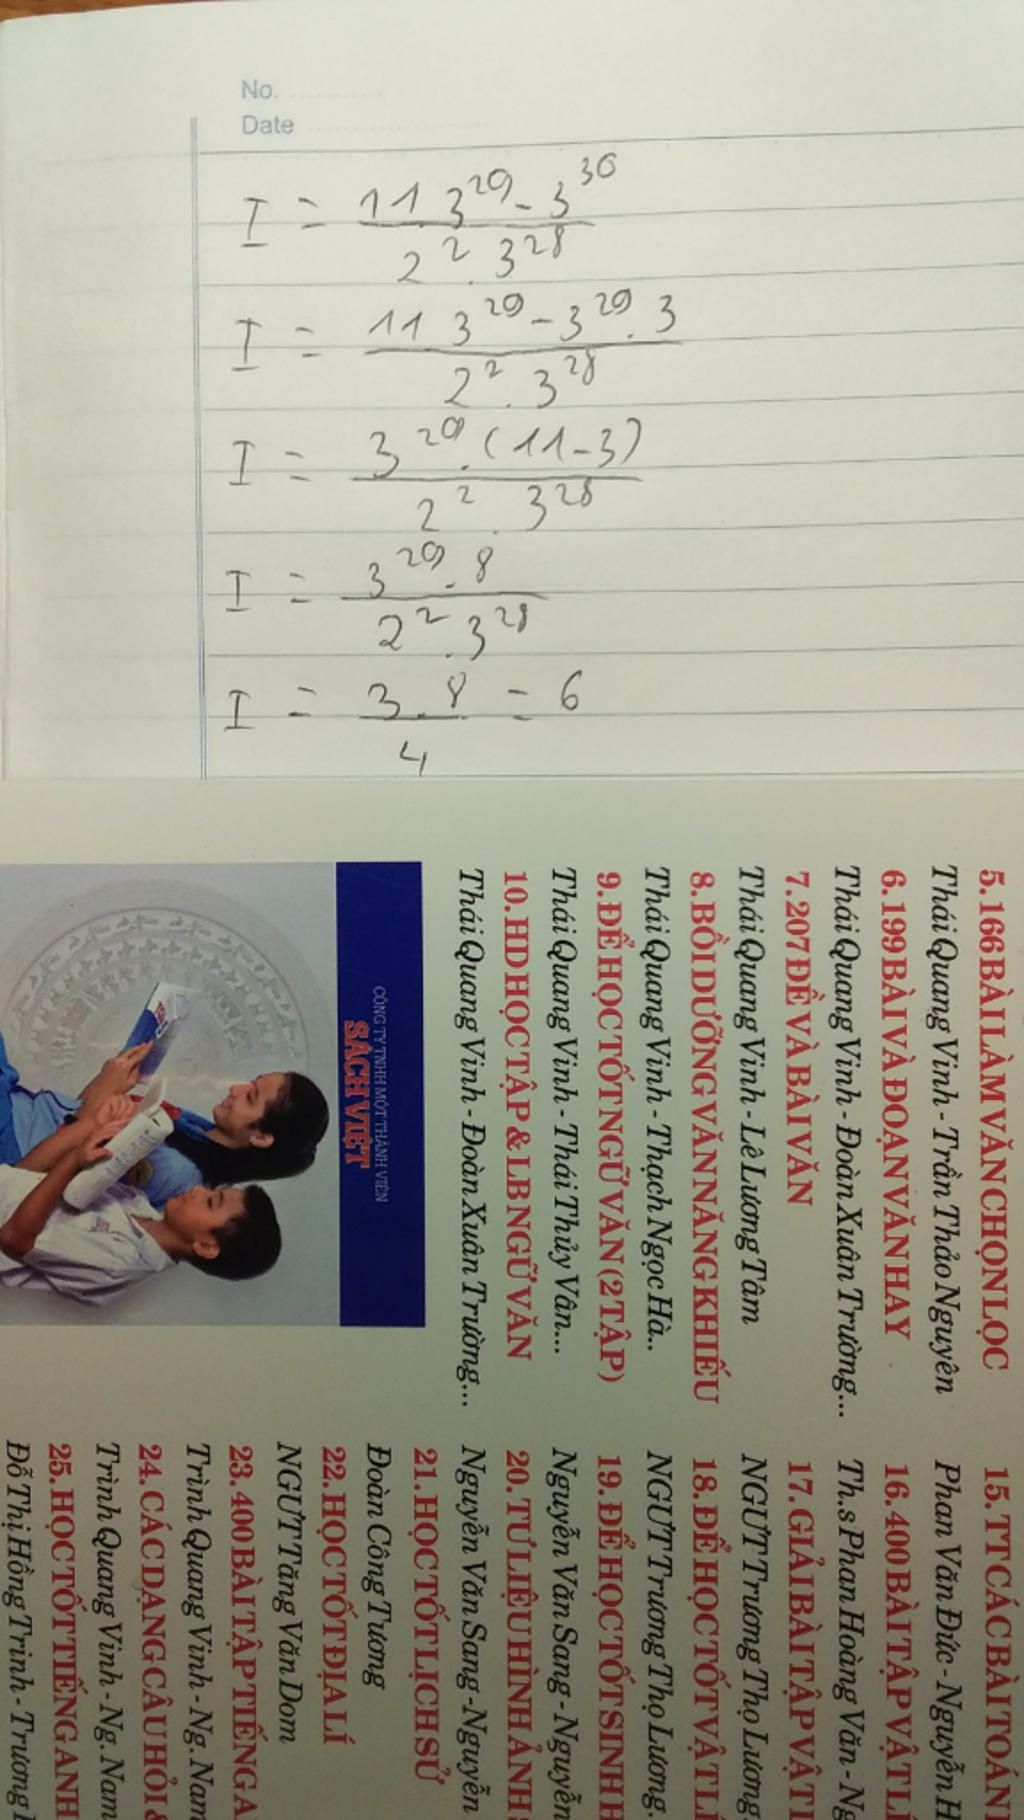 No.
Date
I = 11 3^29 - 3^30 / 2^2 . 3^28
I = 11 3^29 - 3^29 . 3 / 2^2 . 3^28
I = 3^29 . (11 - 3) / 2^2 . 3^28
I = 3^29 . 8 / 2^2 . 3^28
I = 3 . 8 / 4 = 6
5. 166 BÀI LÀM VĂN CHỌN LỌC
Thái Quang Vinh - Trần Thảo Nguyên
6. 199 BÀI VÀ ĐOẠN VĂN HAY
Thái Quang Vinh - Đoàn Xuân Trường...
7. 207 ĐỀ VÀ BÀI VĂN
Thái Quang Vinh - Lê Lương Tâm
8. BỒI DƯỠNG VĂN NĂNG KHIẾU
Thái Quang Vinh - Thạch Ngọc Hà..
9. ĐỂ HỌC TỐT NGỮ VĂN (2 TẬP)
Thái Quang Vinh - Thái Thủy Vân...
10. HD HỌC TẬP & LB NGỮ VĂN
Thái Quang Vinh - Đoàn Xuân Trường...
CÔNG TY TNHH MỘT THÀNH VIÊN
SÁCH VIỆT
15. TT CÁC BÀI TOÁN
Phan Văn Đức - Nguyễn H
16. 400 BÀI TẬP VẬT L
Th.s Phan Hoàng Văn - Ng
17. GIẢI BÀI TẬP VẬT
NGƯT Trương Thọ Lương
18. ĐỂ HỌC TỐT VẬT L
NGƯT Trương Thọ Lương.
19. ĐỂ HỌC TỐT SINH H
Nguyễn Văn Sang - Nguyễn
20. TƯ LIỆU HÌNH ẢNH
Nguyễn Văn Sang - Nguyễn
21. HỌC TỐT LỊCH SỬ
Đoàn Công Tương
22. HỌC TỐT ĐỊA LÍ
NGƯT Tăng Văn Dom
23. 400 BÀI TẬP TIẾNG A
Trình Quang Vinh - Ng. Nam
24. CÁC DẠNG CÂU HỎI &
Trình Quang Vinh - Ng. Nam
25. HỌC TỐT TIẾNG ANH
Đỗ Thị Hồng Trinh - Trương